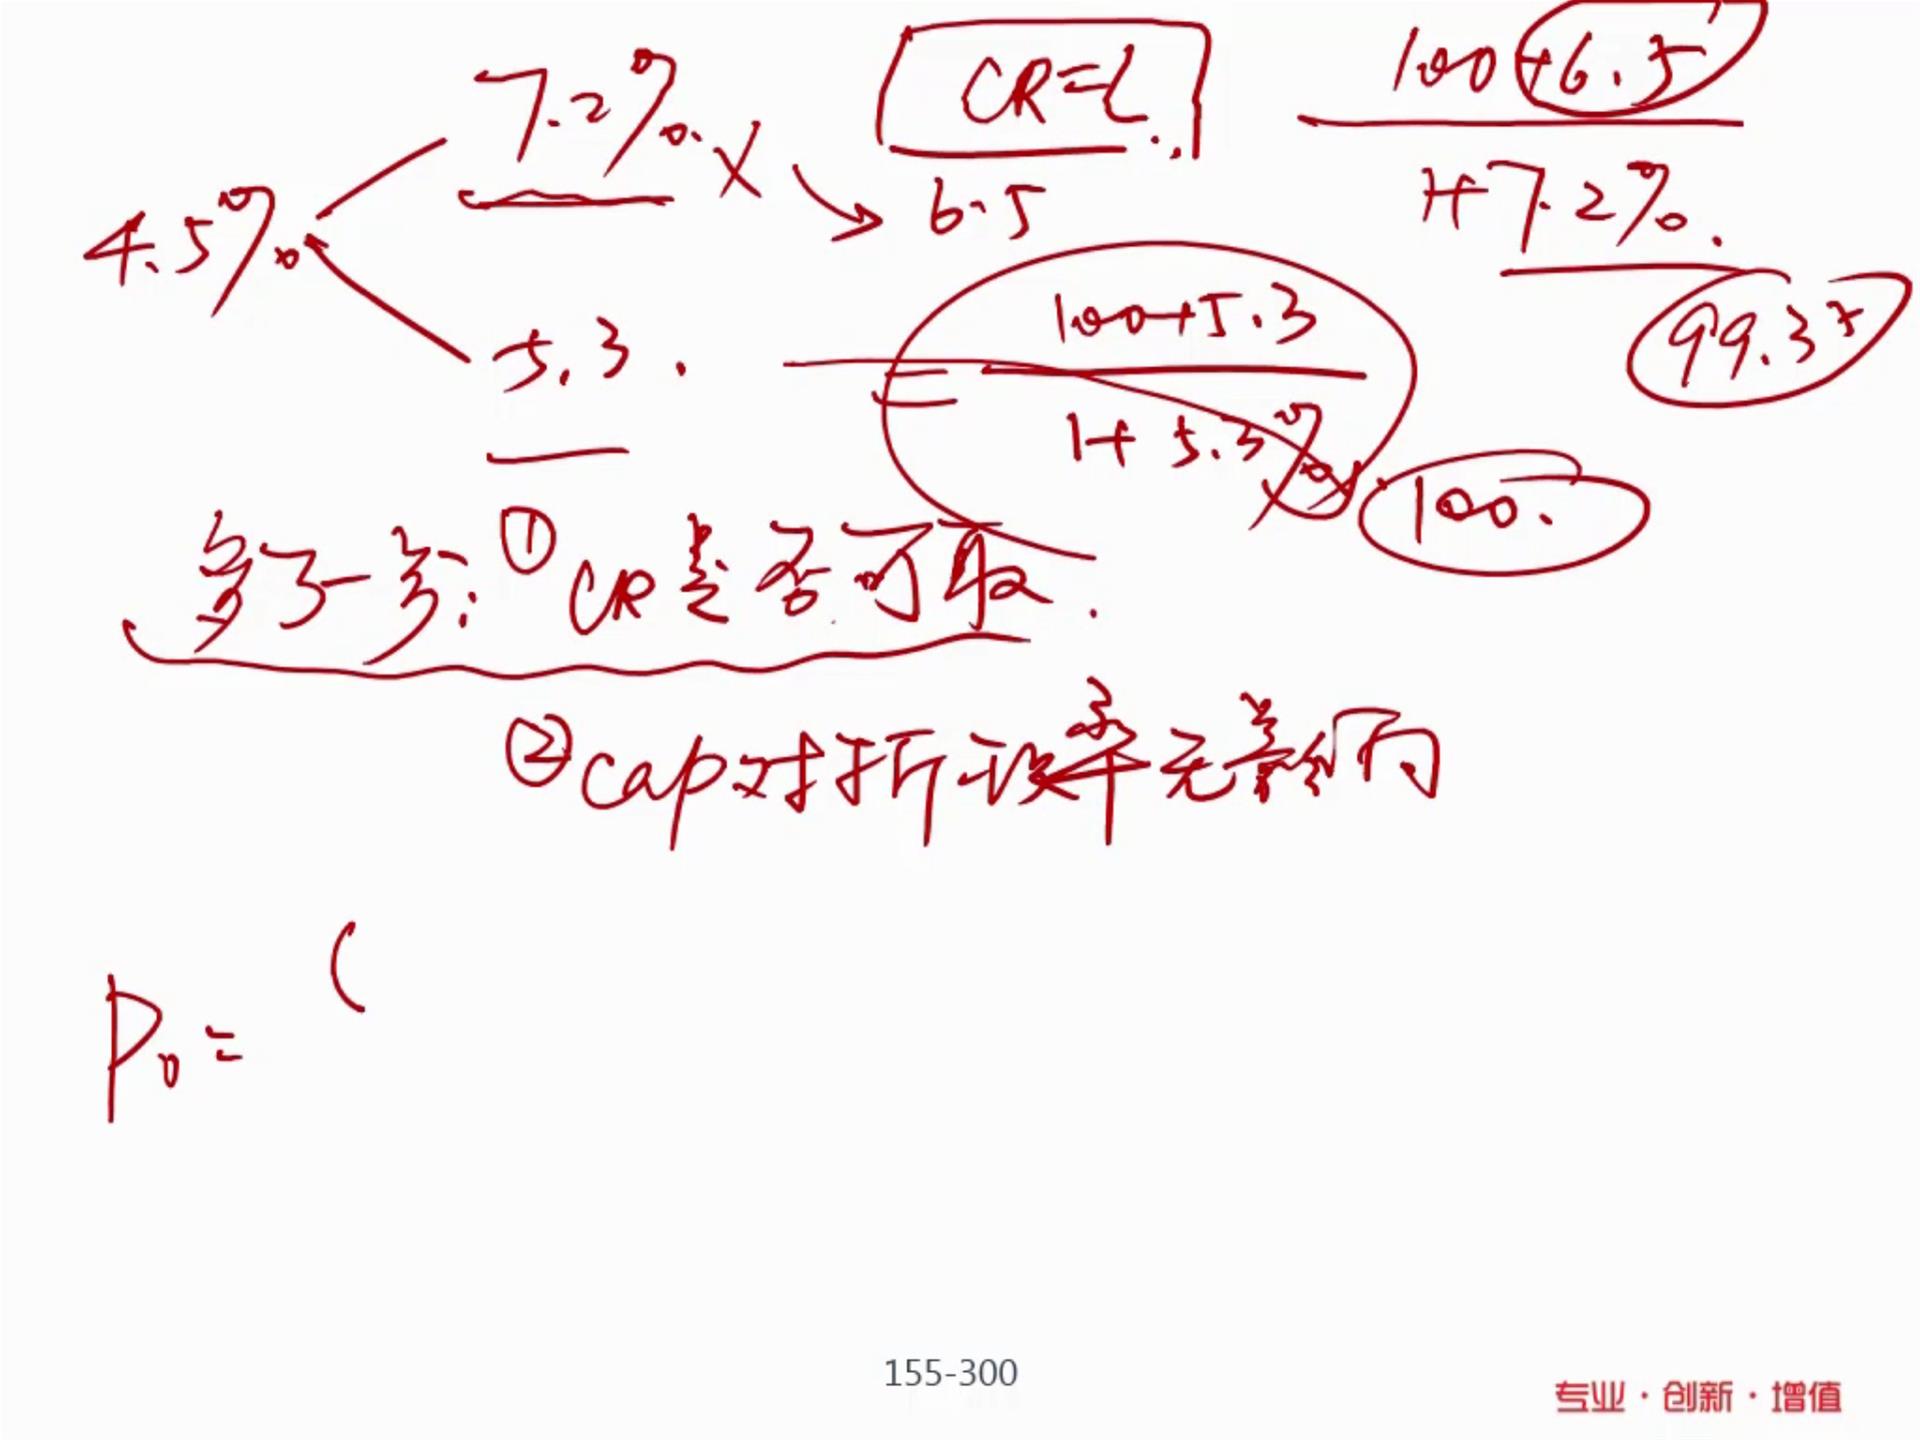 7.2% X
CR=L
100+6.5
1+7.2%
99.35
6.5
4.5%
5.3
100+5.3
1+5.3%
100
多了一步: ① CR是否可取
② cap对折现率无影响
P₀= (
155-300
专业·创新·增值